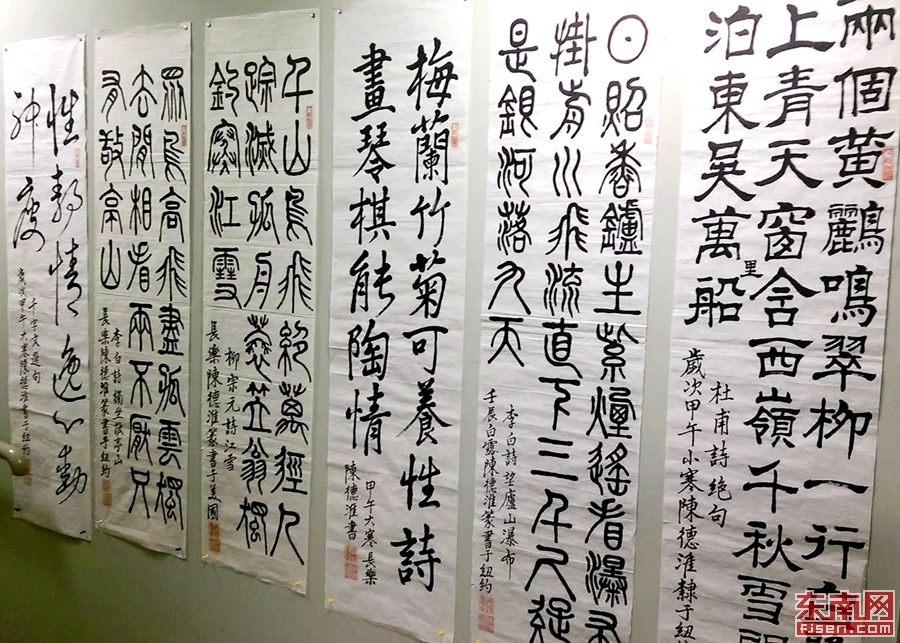 兩個黃鸝鳴翠柳一行
上青天窗含西嶺千秋雪
泊東吳萬里船
杜甫詩絕句
歲次甲午小寒陳德淮隸于紐
日照香鑪生紫煙遙看瀑布
掛前川飛流直下三千尺疑
是銀河落九天
李白詩望廬山瀑布
壬辰白露陳德淮篆書于紐約
梅蘭竹菊可養性詩
畫琴棋能陶情
甲午大寒長樂
陳德淮書
千山鳥飛絕萬徑人
踪滅孤舟蓑笠翁獨
釣寒江雪
柳宗元詩江雪
長樂陳德淮篆書于美國
眾鳥高飛盡孤雲獨
去閒相看兩不厭只
有敬亭山
李白詩獨坐敬亭山
長樂陳德淮篆書于紐約
性靜情逸心動
神疲
千字文選句
歲次甲午大寒陳德淮書于紐約
东南网
fjsen.com